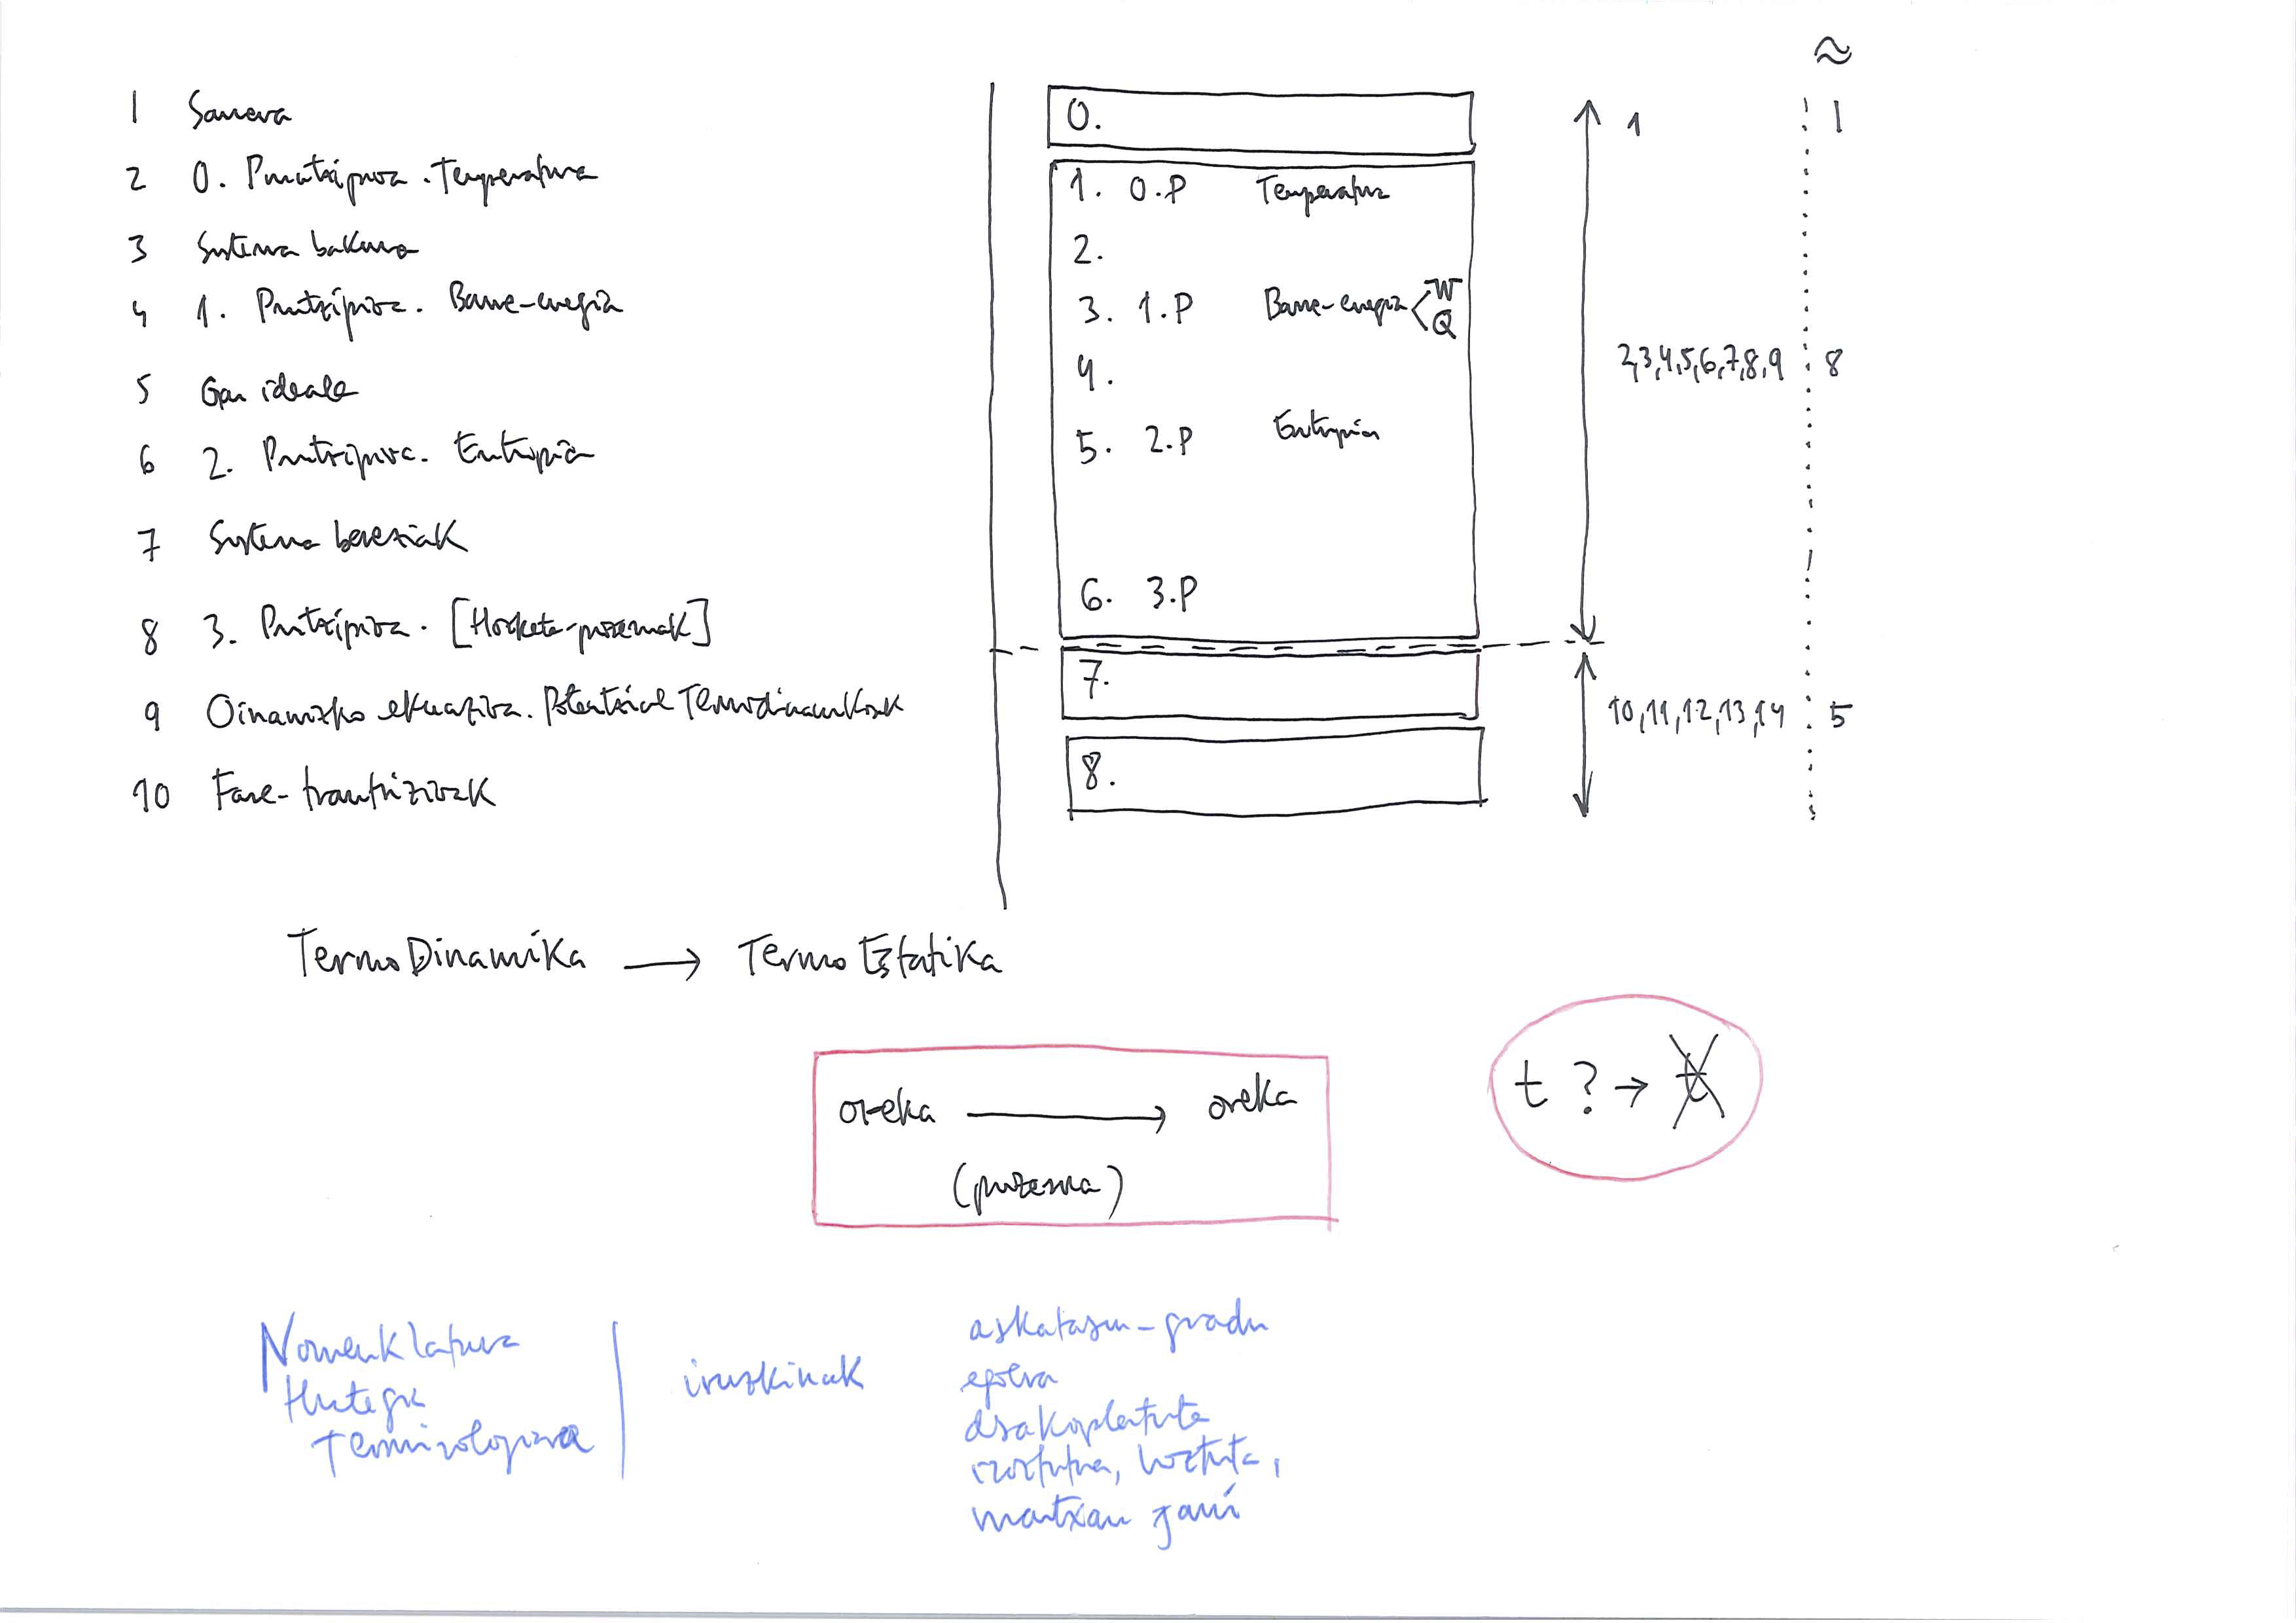 1 Sarrera
2 0. Printzipioa. Temperatura
3 Sistema bakuna
4 1. Printzipioa. Barne-energia
5 Gas ideala
6 2. Printzipioa. Entropia
7 Sistema bereziak
8 3. Printzipioa. [Hozketa-prozesuak]
9 Oinarrizko ekuazioa. Potentzial Termodinamikoak
10 Fase-trantsizioak
≈
0.
1. 0.P Temperatura
2.
3. 1.P Barne-energia W Q
4.
5. 2.P Entropia
6. 3.P
7.
8.
1 1
2,3,4,5,6,7,8,9 8
10,11,12,13,14 5
TermoDinamika → TermoEstatika
oreka → oreka
(prozesua)
t ? → t
Nomenklatura
Hiztegia
Terminologia
iruzkinak
askatasun-gradu
egoera
desakoplatuta
izoztutua, hoztuta,
martxan jarri